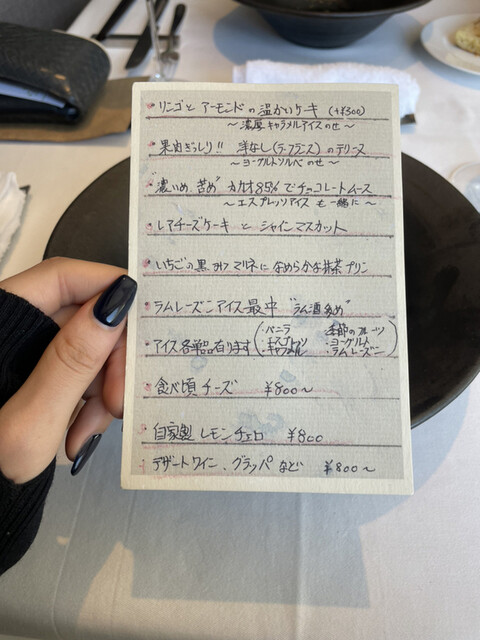 リンゴと アーモンドの温かいケーキ (+¥300)
～濃厚キャラメルアイスのせ～
果肉ぎっしり!! 洋なし(ラ・フランス)のテリーヌ
～ヨーグルトソルベのせ～
"濃いめ、苦め" カカオ85%でチョコレートムース
～エスプレッソアイスも一緒に～
レアチーズケーキ と シャインマスカット
いちごの黒 マリネに なめらかな抹茶プリン
ラムレーズンアイス最中 "ラム酒多め"
アイス各単品有ります
・バニラ ・季節のフルーツ
・エスプレッソ ・ヨーグルト
・キャラメル ・ラムレーズン
食べ頃チーズ ¥800～
自家製レモンチェロ ¥800
デザートワイン、グラッパなど ¥800～